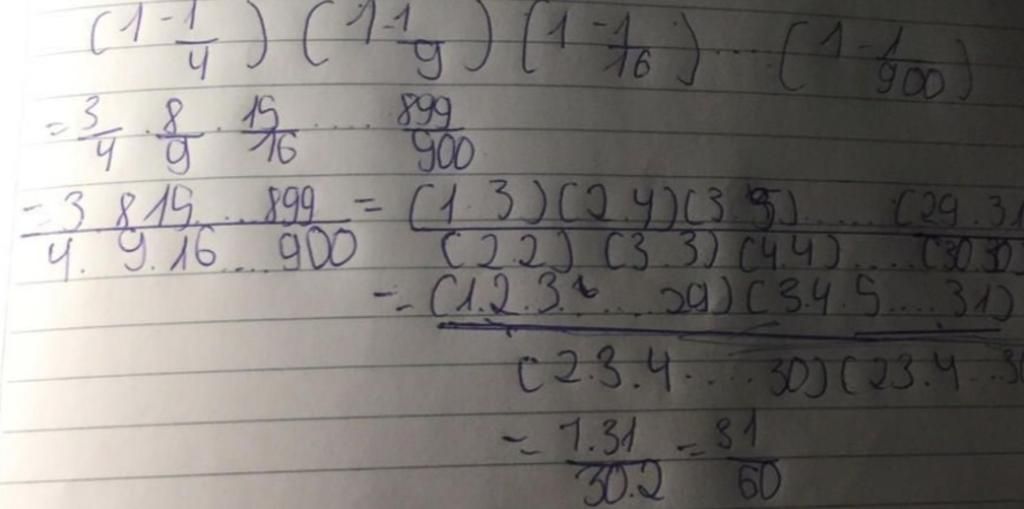 (1-1/4)(1-1/9)(1-1/16)....(1-1/900)
=3/4.8/9.15/16....899/900
=3 8 15...899/4.9.16...900=(1.3)(2.4)(3.5).....(29.31/(2.2)(3.3)(4.4)....(30.30)
=(1.2.3.....29)(3.4.5....31)/(2.3.4....30)(23.4...30
=1.31/30.2=31/60